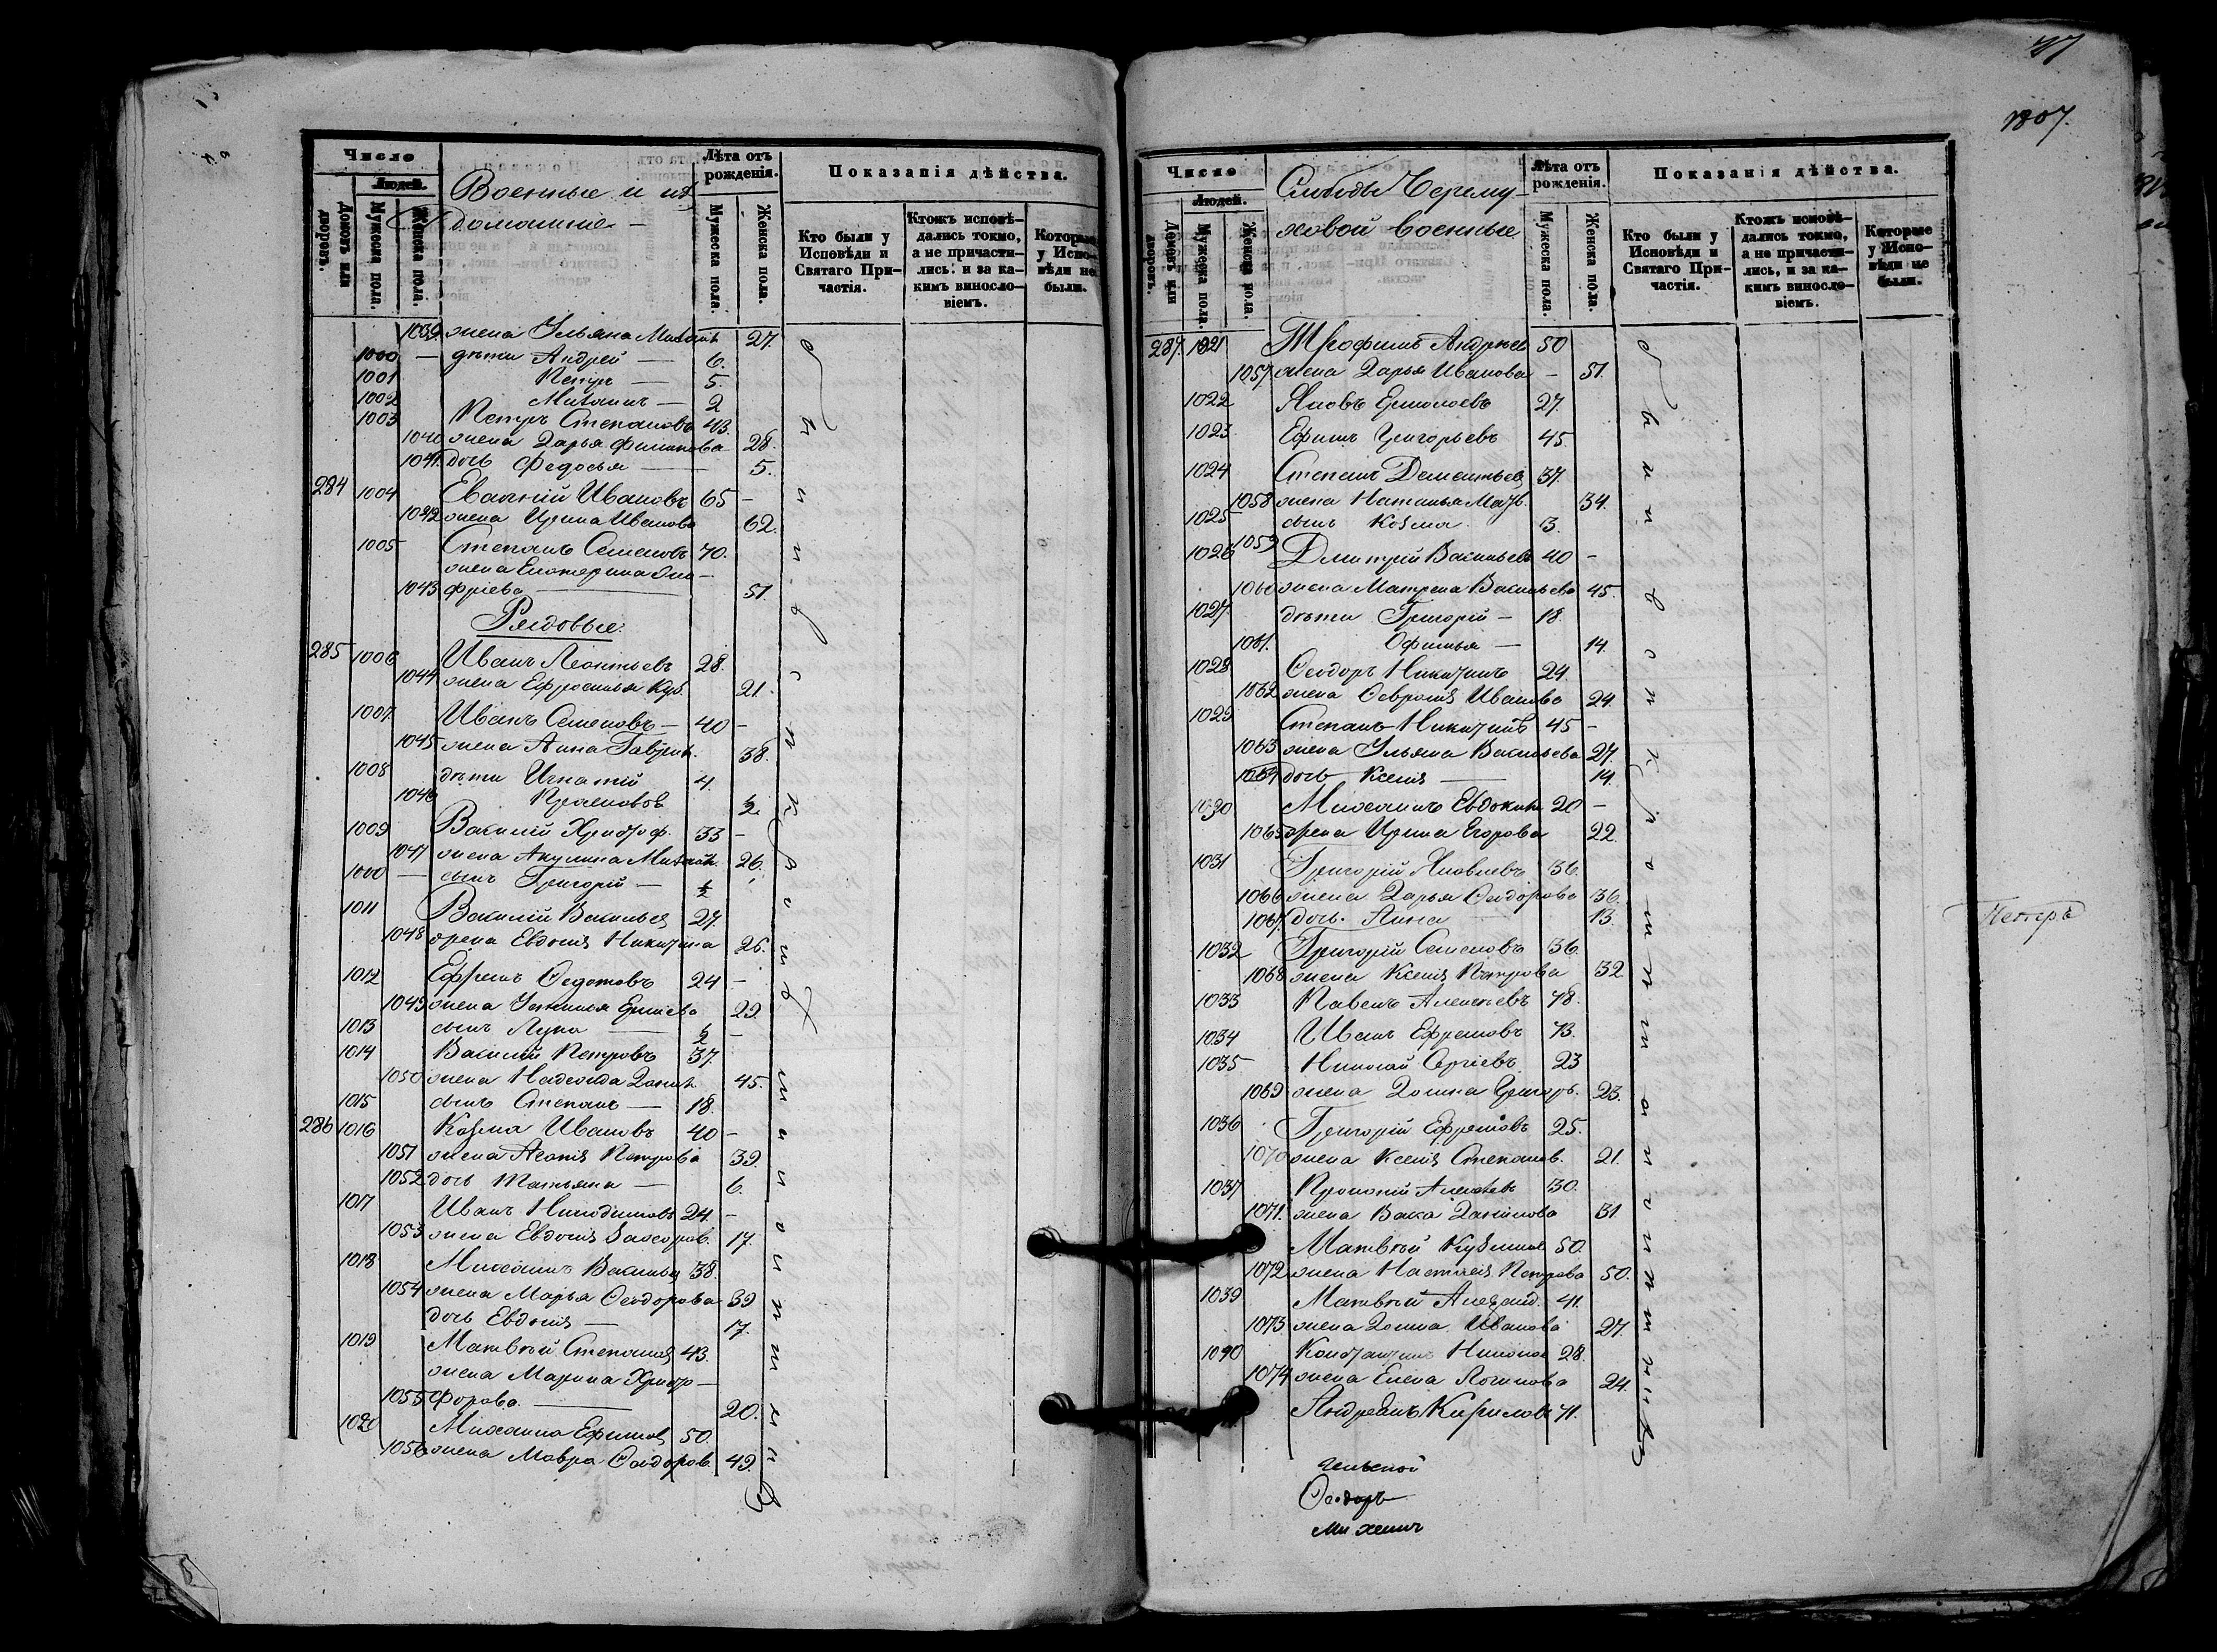 Число
Людей.
Домовъ или дворовъ.
Мужеска пола.
Женска пола.
Военные и ихъ
домашніе
Лѣта отъ рожденія.
Мужеска пола.
Женска пола.
Показанія дѣйства.
Кто были у Исповѣди и Святаго Причастія.
Ктожъ исповѣдались токмо, а не причастились: и за какимъ винословіемъ.
Которые у Исповѣди не были.
1039 жена Ульяна 27.
1000 — дѣти Андрей — 6.
1001 Петръ — 5.
1002 — 2
1003 Петръ Степановъ 43.
1040 жена Дарья 28.
1041 дочь Федосья — 5.
284 1004 Ивановъ 65 —
1042 жена Ирина Иванова 62.
1005 Степанъ Семеновъ 70.
жена Екатерина Оно—
1043 фріева — 51.
Рядовые.
285 1006 Иванъ Леонтьевъ 28.
1044 жена Ефросинья 21.
1007 Иванъ Семеновъ — 40 —
1045 жена Анна Гаврил. 38.
1008 дѣти Игнатій 4.
1046 ½
1009 Василій Христоф. 33 —
1047 жена Акулина 26.
1000 — сынъ Григорій — ½
1011 Василій Васильев 27.
1048 жена Евдокія Никитина 26.
1012 Ефремъ Ѳедотовъ 24 —
1049 жена Устинья 29.
1013 сынъ Лука — ½ —
1014 Василій Петровъ 37.
1050 жена Надежда Данил. 45.
1015 сынъ Степанъ — 18.
286 1016 Козма Ивановъ 40 —
1051 жена Петрова 39.
1052 дочь Татьяна — 6.
1017 Иванъ Никодимовъ 24. —
1053 жена Евдокія 17.
1018 Михаилъ Васильев 38.
1054 жена Марья Ѳеодорова 39
дочь Евдокія — 17.
1019 Матвѣй Степанов 43.
жена Марина Христо—
1055 форова. — 20.
1020 Михаилъ Ефимов 50.
1056 жена Мавра Ѳеодоров. 49.
1807.
Число
Людей.
Домовъ или дворовъ.
Мужеска пола.
Женска пола.
Слободы Черему—
ховой военные
Лѣта отъ рожденія.
Мужеска пола.
Женска пола.
Показанія дѣйства.
Кто были у Исповѣди и Святаго Причастія.
Ктожъ исповѣдались токмо, а не причастились, и за какимъ винословіемъ.
Которые у Исповѣди не были.
287. 1021 Трофимъ Андреев 50
1057 жена Дарья Иванова — 51.
1022 Яковъ Ермолаевъ 27.
1023 Ефимъ Григорьевъ 45.
1024 Степанъ Дементьев 37.
1058 жена Наталья 34.
1025 сынъ Козма. 3.
1026 1059 Дмитрій Васильевъ 40 —
1060 жена Матрена Васильева 45.
1027. дѣти Григорій — 18.
1061. Офимья — 14.
1028 Ѳеодоръ Никитинъ 24.
1062 жена Ѳевронія Иванова 24.
1029 Степанъ Никитинъ 45 —
1063 жена Ульяна Васильева 27.
1064 дочь Ксенія — 14.
1030 Михаилъ Евдоким 20 —
1065 жена Ирина Егорова 22.
1031 Григорій Яковлевъ 36.
1066 жена Дарья Ѳеодорова 36.
1067. дочь. Анна 13.
1032 Григорій Семеновъ 36.
1068 жена Ксенія Петрова 32
1033 Павелъ Алексѣевъ 48.
1034 Иванъ Ефремовъ 73.
1035 Николай Сергіевъ 23
1069 жена Домна Григор. 23.
1036 Григорій Ефремовъ 25.
1070 жена Ксенія Степанов. 21.
1037 Прокопій Алексѣевъ 30.
1071. жена Васса Данилова 31.
Матвѣй Кузмин 50.
1072 жена Настасія Петрова 50.
1039 Матвѣй Александ. 41.
1073 жена Домна Иванова 27.
1040 Константинъ 28.
1074 жена Елена Логинова 24.
Андреянъ Кирилов 71.
Ѳеодоръ